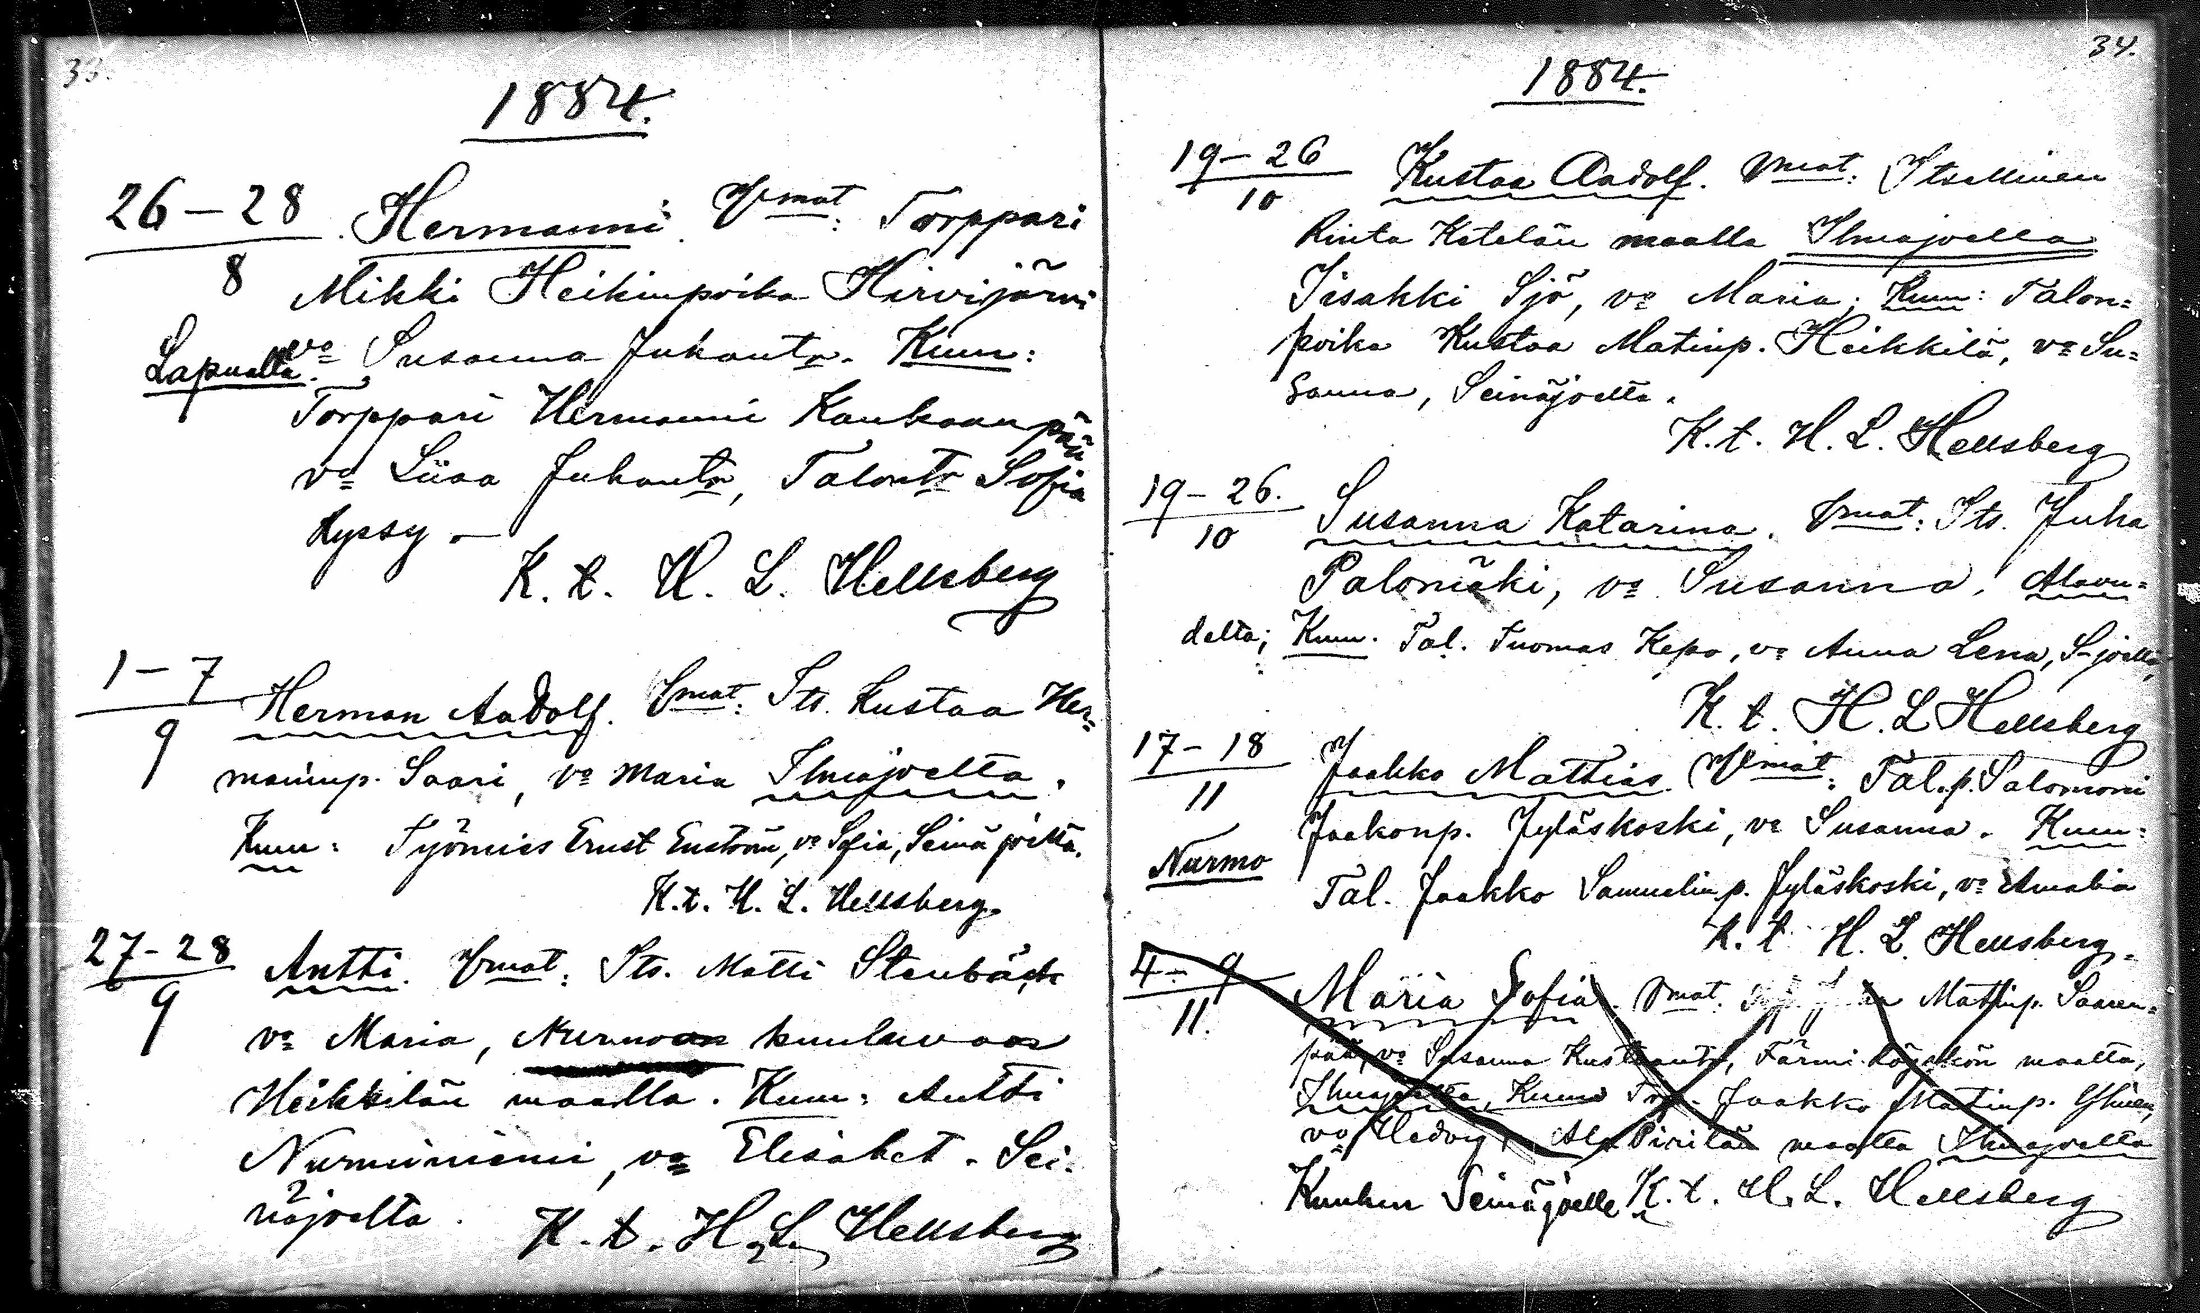 33.
1884.
26–28
8
Hermanni. Vmat: Torppari
Mikki Heikinpoika Hirvijärvi
Lapualta. va Susanna Juhantr. Kum:
Torppari Hermanni Kauhaanpää
va Liisa Juhantr, Talontr Sofia
Kyssy.–
K. t. H. L. Hellsberg
1–7
9
Herman Aadolf. Vmat: Its. Kustaa Her=
maninp. Saari, va Maria Ilmajoelta.
Kum: Työmies Ernst Enström, va Sofia, Seinäjoelta.
K.t. H. L. Hellsberg.
27–28
9
Antti. Vmat: Its. Matti Stenbäck
va Maria, Nurmoon kuuluvaas
Heikkilän maalla. Kum: Antti
Nurminiemi, va Elisabet. Sei=
näjoelta.
K. t. H. L. Hellsberg
34.
1884.
19–26
10
Kustaa Aadolf. Vmat: Itsellinen
Rinta Ketelän maalla Ilmajoella
Iisakki Sjö, va Maria; Kum: Talon=
poika Kustaa Matinp. Heikkilä, va Su=
sanna, Seinäjoelta.
K. t. H. L. Hellsberg
19–26.
10
Susanna Katarina. Vmat: Its. Juha
Palomäki, va Susanna, Alavu=
delta; Kum. Tal. Tuomas Kepo, va Anna Lena, S-joelta,
K. t. H. L Hellsberg
17–18
11
Jaakko Mattias. Vmat: Tal.p. Salomoni
Jaakonp. Jyläskoski, va Susanna. Kum:
Nurmo
Tal. Jaakko Samuelinp. Jyläskoski, va Amalia
K. t H. L. Hellsberg.
4–9
11.
Maria Sofia. Vmat. Matinp. Saaren=
pää, va Susanna Kustaantr, Färmi maalta,
Ilmajoelta, Kum: Jaakko Matinp.
va Hedvig, Ala Pirilän maalta Ilmajoelta
Kuuluu Seinäjoelle K. t. H. L. Hellsberg